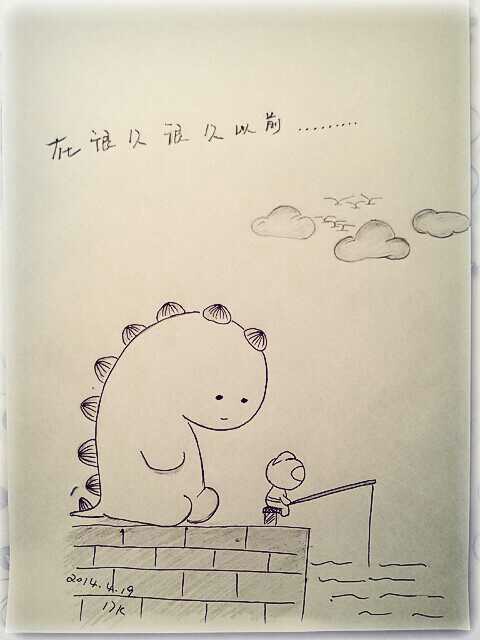 在很久很久以前.........
2014.4.19